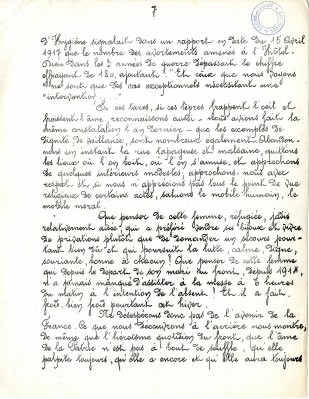 7
d'Hygiène signalait dans un rapport en date du 15 Avril
1917 que le nombre des avortements amenés à l'Hôtel-
Dieu dans les 3 années de guerre dépassait le chiffre
effrayant de 120, ajoutant: "Et ceux que nous voyons
ne sont que des cas exceptionnels nécessitant une
"intervention
Si ces tares, si ces lèpres frappent l'oeil et
froissent l'âme, reconnaissons aussi - nous avions fait la
même constatation l'an dernier - que les exemples de
dignité, de vaillance, sont nombreux également. Abandon-
nons un instant la rue tapageuse et malsaine, quittons
les lieux où l'on boit, où l'on s'amuse, et approchons
de quelques intérieurs modestes, approchons-nous avec
respect et si nous n'apprécions pas tous le point de vue
religieux de certains actes, saluons le mobile humain, le
mobile moral.
Que penser de cette femme, réfugiée, jadis
relativement aisée, qui a préféré vendre ses bijoux et vivre
de privations plutôt que de demander un secours pour-
tant bien dû et qui poursuit la lutte, calme, digne,
souriante, bonne à chacun! Que penser de cette femme
qui depuis le départ de son mari du front, depuis 1914,
n'a jamais manqué d'assister à la messe à 6 heures
du matin à l'intention de l'absent! Et il a fait
froid, bien froid pourtant cet hiver.
Ne désespérons donc pas de l'avenir de la
France. Ce que nous découvrons à l'arrière nous montre,
de même que l'héroïsme quotidien du front, que l'âme
de la Patrie n'est pas à bout de souffle, qu'elle
palpite toujours, qu'elle a encore et qu'elle aura toujours